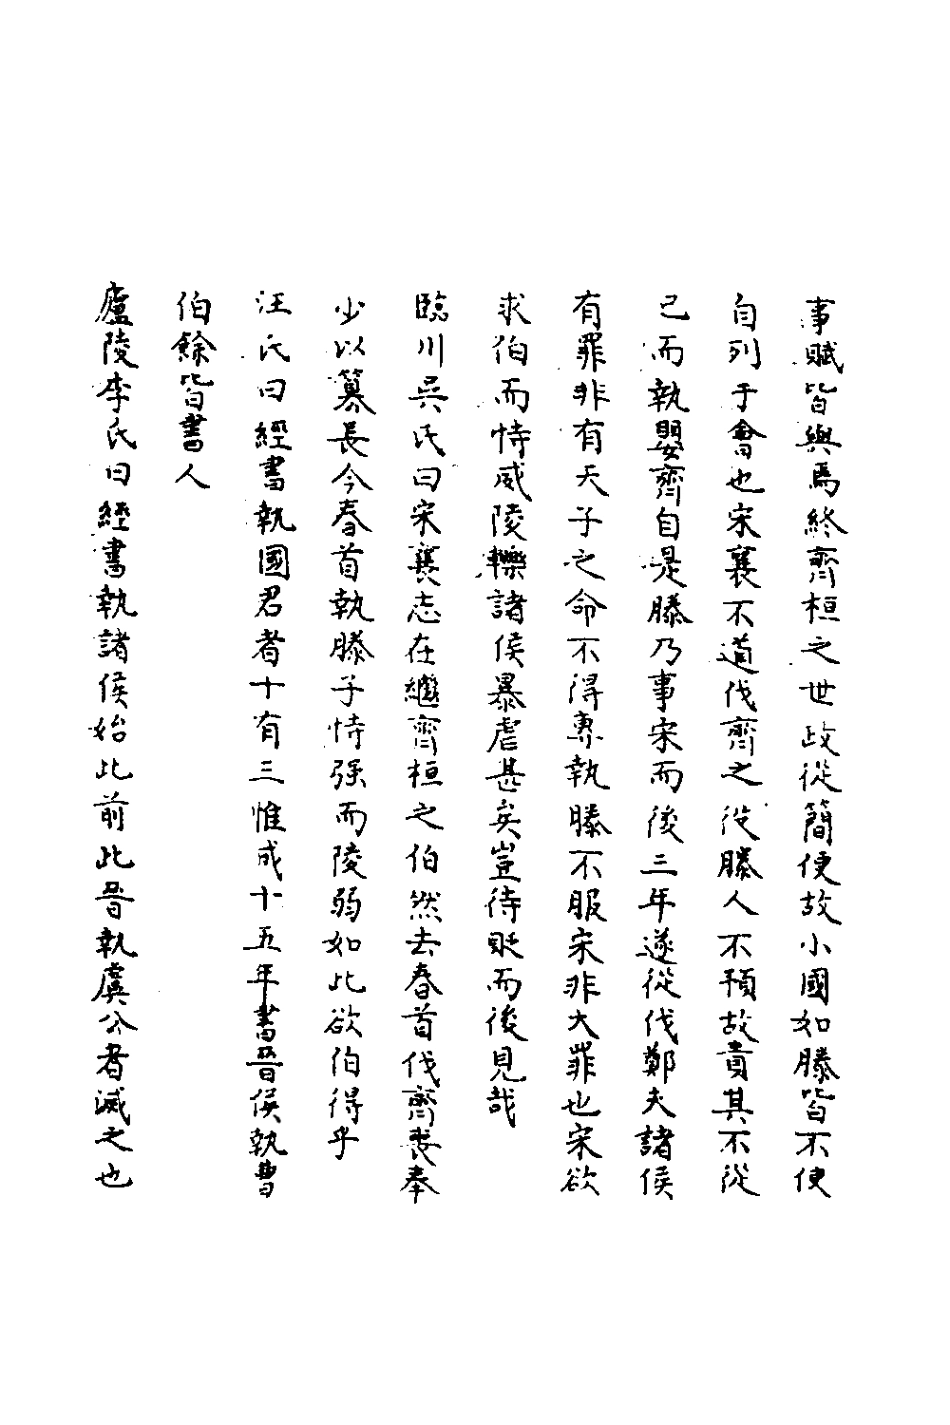 事賦皆與焉終齊桓之世政從簡便故小國如滕皆不使
自列于會也宋襄不道伐齊之役滕人不預故責其不從
已而執嬰齊自是滕乃事宋而後三年遂從伐鄭夫諸侯
有罪非有天子之命不得專執滕不服宋非大罪也宋欲
求伯而恃威陵轢諸侯暴虐甚矣豈待貶而後見哉
臨川吳氏曰宋襄志在繼齊桓之伯然去春首伐齊喪奉
少以簒長今春首執滕子恃强而陵弱如此欲伯得乎
汪氏曰經書執國君者十有三惟成十五年書晉侯執曹
伯餘皆書人
廬陵李氏曰經書執諸侯始此前此晉執虞公者滅之也